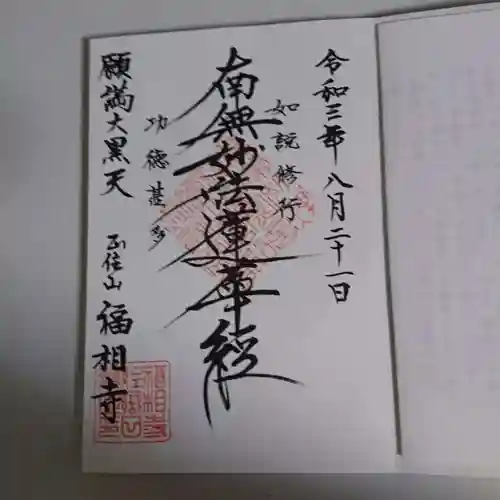 令和三年八月二十一日
如説修行
南無妙法蓮華経
功徳甚多
願満大黒天
正住山
福相寺